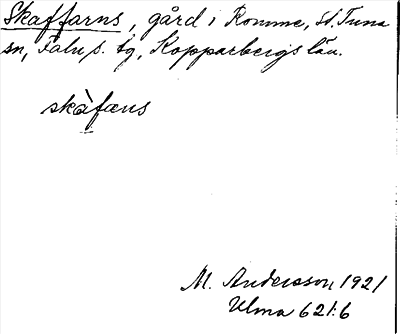 Skaffarns, gård i Romme, St. Tuna
sn, Falu s. tg, Kopparbergs län.
skàfæns
M. Andersson 1921
Ulma 621:6